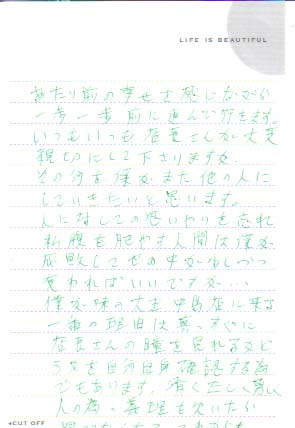 LIFE IS BEAUTIFUL
あたり前の幸せを感じながら
一歩一歩前に進んで行きます。
いつもいつも店長さんが大変
親切にして下さりますが
その分を僕がまた他の人に
していきたいと思います。
人に対しての思いやりを忘れ
私腹を肥やす人間は僕が
成敗して世の中が少しづつ
変わればいいですが…
僕が味の大王 中島店に来る
一番の理由は真っすぐに
店長さんの瞳を見れるかど
うかを自分自身確認する為
でもあります。清く正しく
人の為 義理も欠いたか
◂CUT OFF